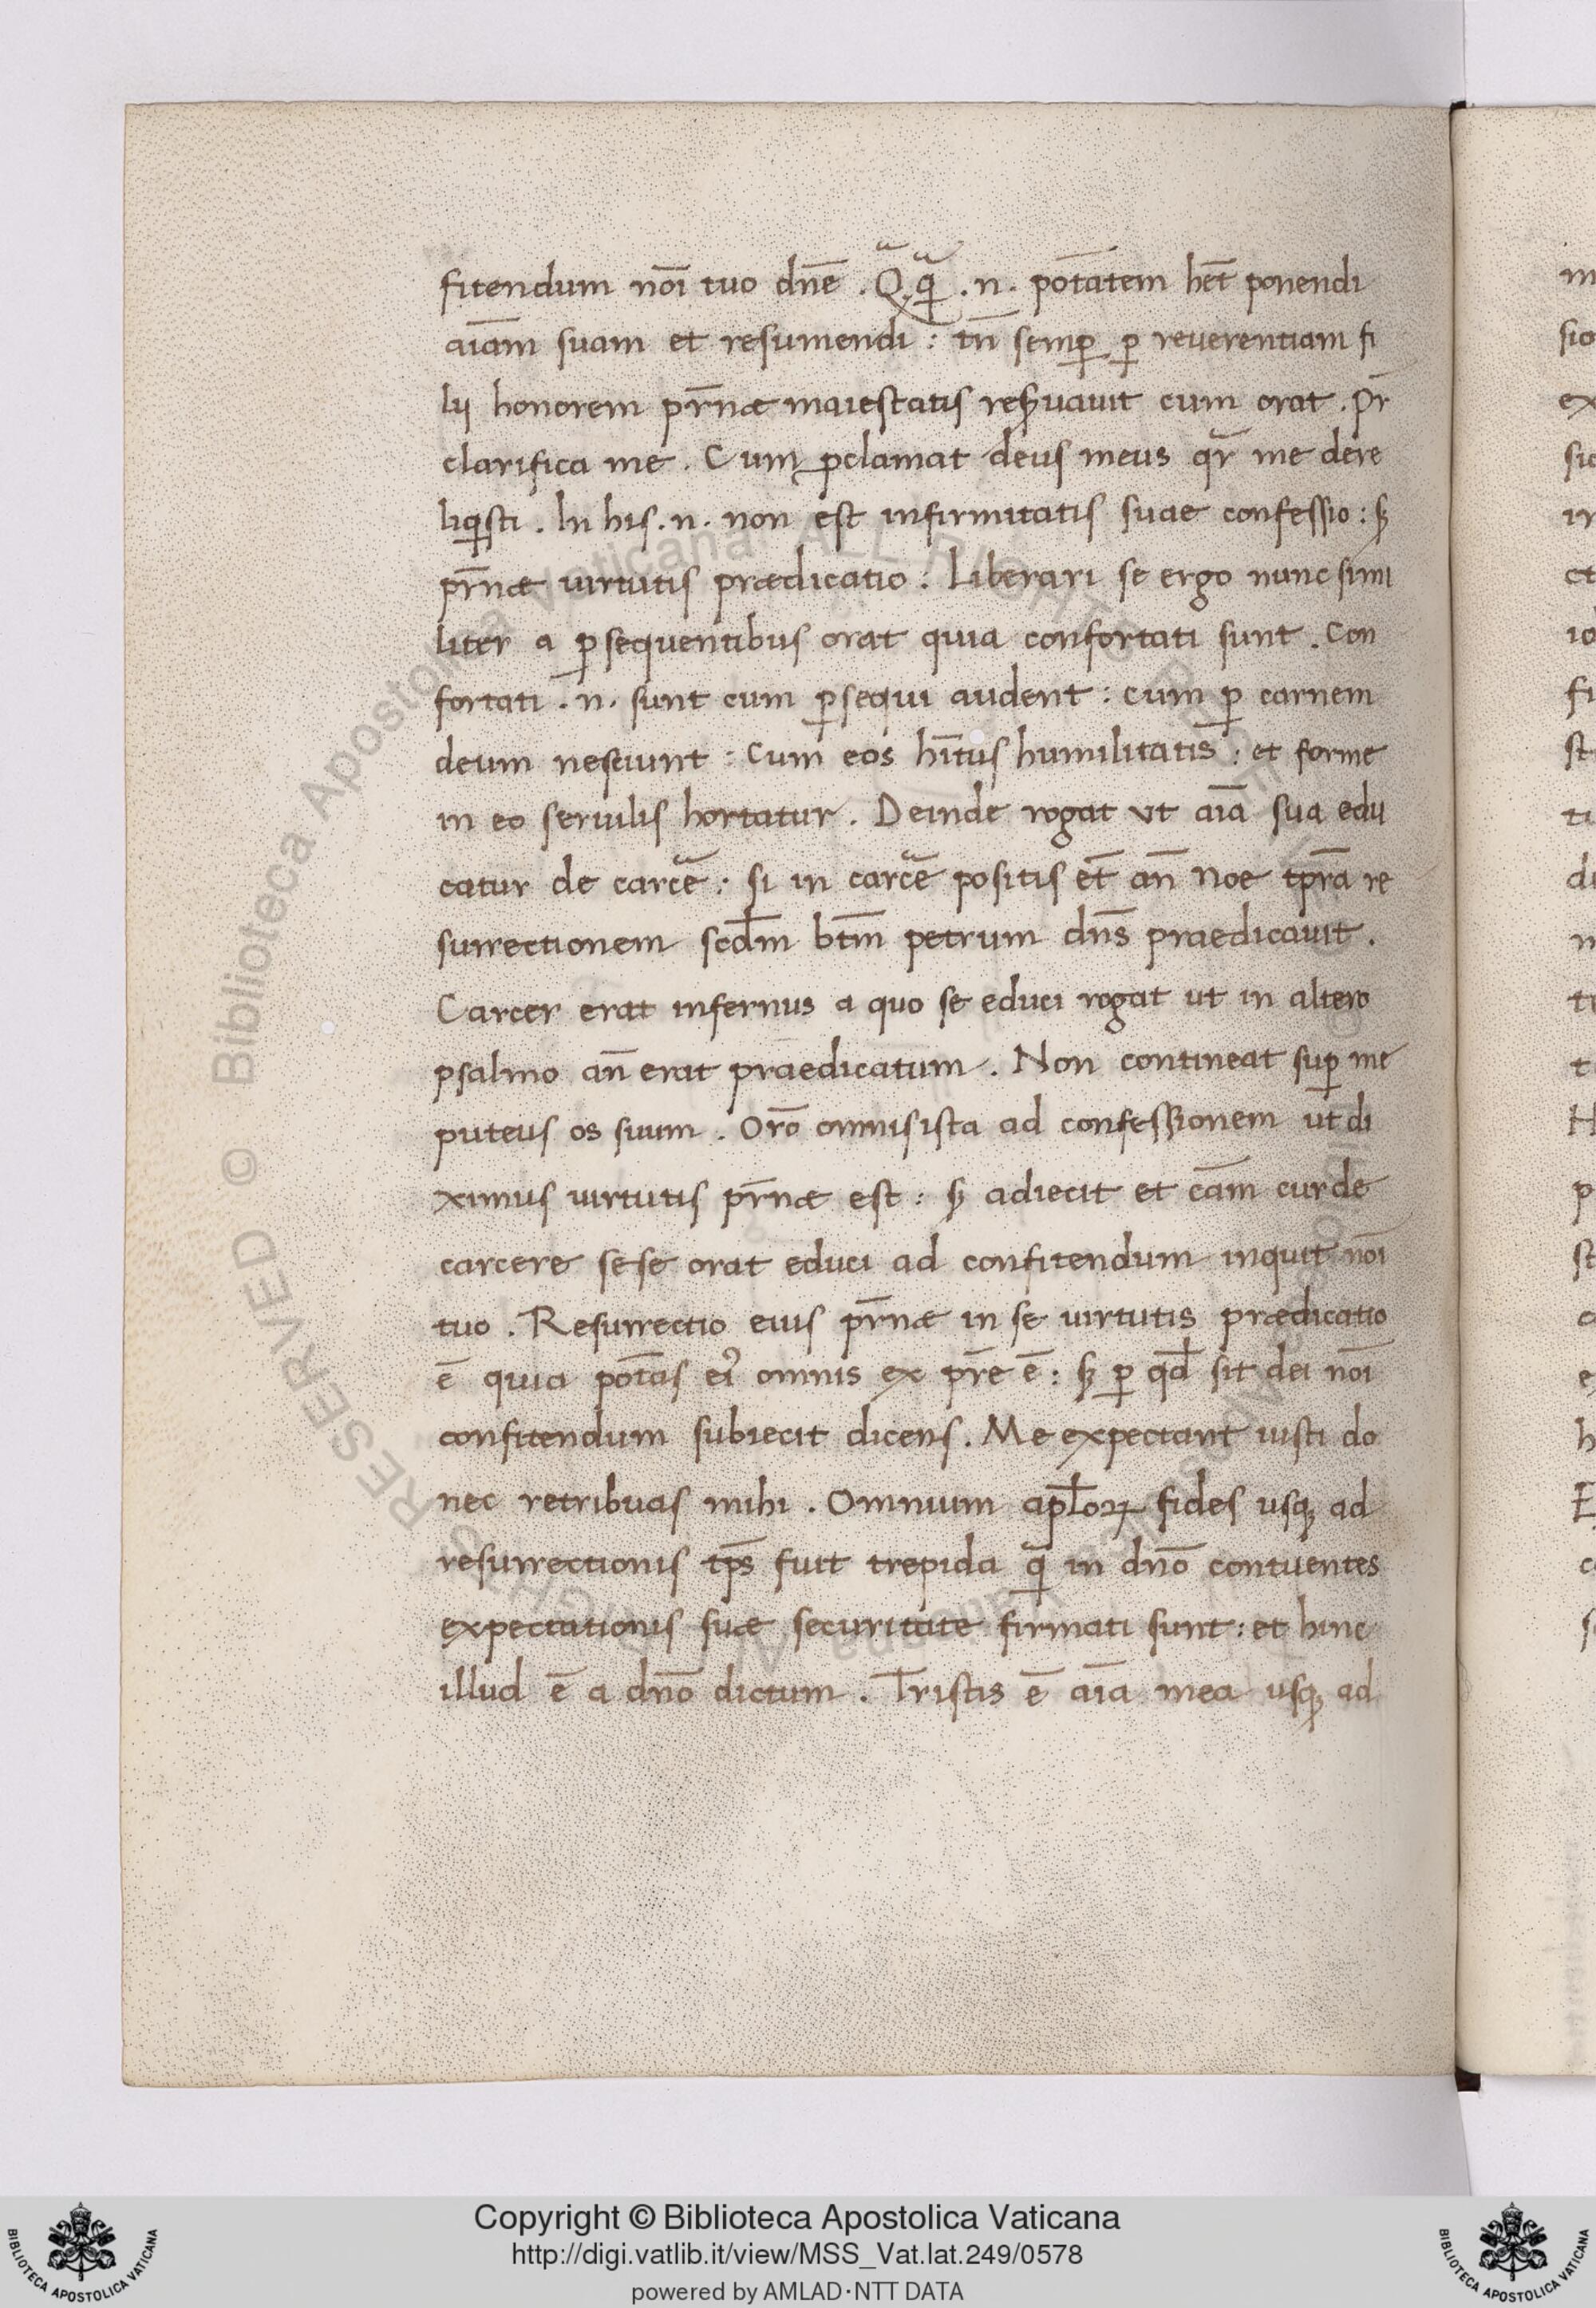 fitendum nōi tuo dn̄e . Qͣqͣ . n . potātem hēt ponendi
aīam suam et resumendi : tn̄ semꝑ ꝑ reuerentiam fi
lij honorem pr̄næ maiestatis resꝭuauit cum orat . pr̄
clarifica me . Cum ꝓclamat deus meus qͣr me dere
liqͥsti . In his . n . non est infirmitatis suae confessio : sꝫ
pr̄næ uirtutis prædicatio : Liberari se ergo nunc simi
liter a ꝑsequentibus orat quia confortati sunt . Con
fortati . n . sunt cum ꝑsequi audent : cum ꝑ carnem
deum nesciunt : Cum eos hītus humilitatis : et forme
in eo seruilis hortatur . Deinde rogat vt aīa sua edu
catur de carcē : si in carcē positis et̄ an̄ Noe tꝑra re
surrectionem scd̄m btm̄ petrum dn̄s praedicauit .
Carcer erat infernus a quo se educi rogat ut in altero
psalmo an̄ erat praedicatum . Non contineat suꝑ me
puteus os suum . Orō omnis ista ad confessionem ut di
ximus uirtutis pr̄næ est : sꝫ adiecit et cām cur de
carcere sese orat educi ad confitendum inquit nōi
tuo . Resurrectio eius pr̄næ in se uirtutis prædicatio
ē quia potās eiꝰ omnis ex pr̄e ē : sꝫ ꝑ qd̄ sit dei nōi
confitendum subiecit dicens . Me expectant iusti do
nec retribuas mihi . Omnium apl̄oꝝ fides usqꝫ ad
resurrectionis tp̄s fuit trepida qͥ in dn̄o contuentes
expectationis suæ securitate firmati sunt : et hinc
illud ē a dn̄o dictum . Tristis ē aīa mea usqꝫ ad
Copyright © Biblioteca Apostolica Vaticana
http://digi.vatlib.it/view/MSS_Vat.lat.249/0578
powered by AMLAD·NTT DATA